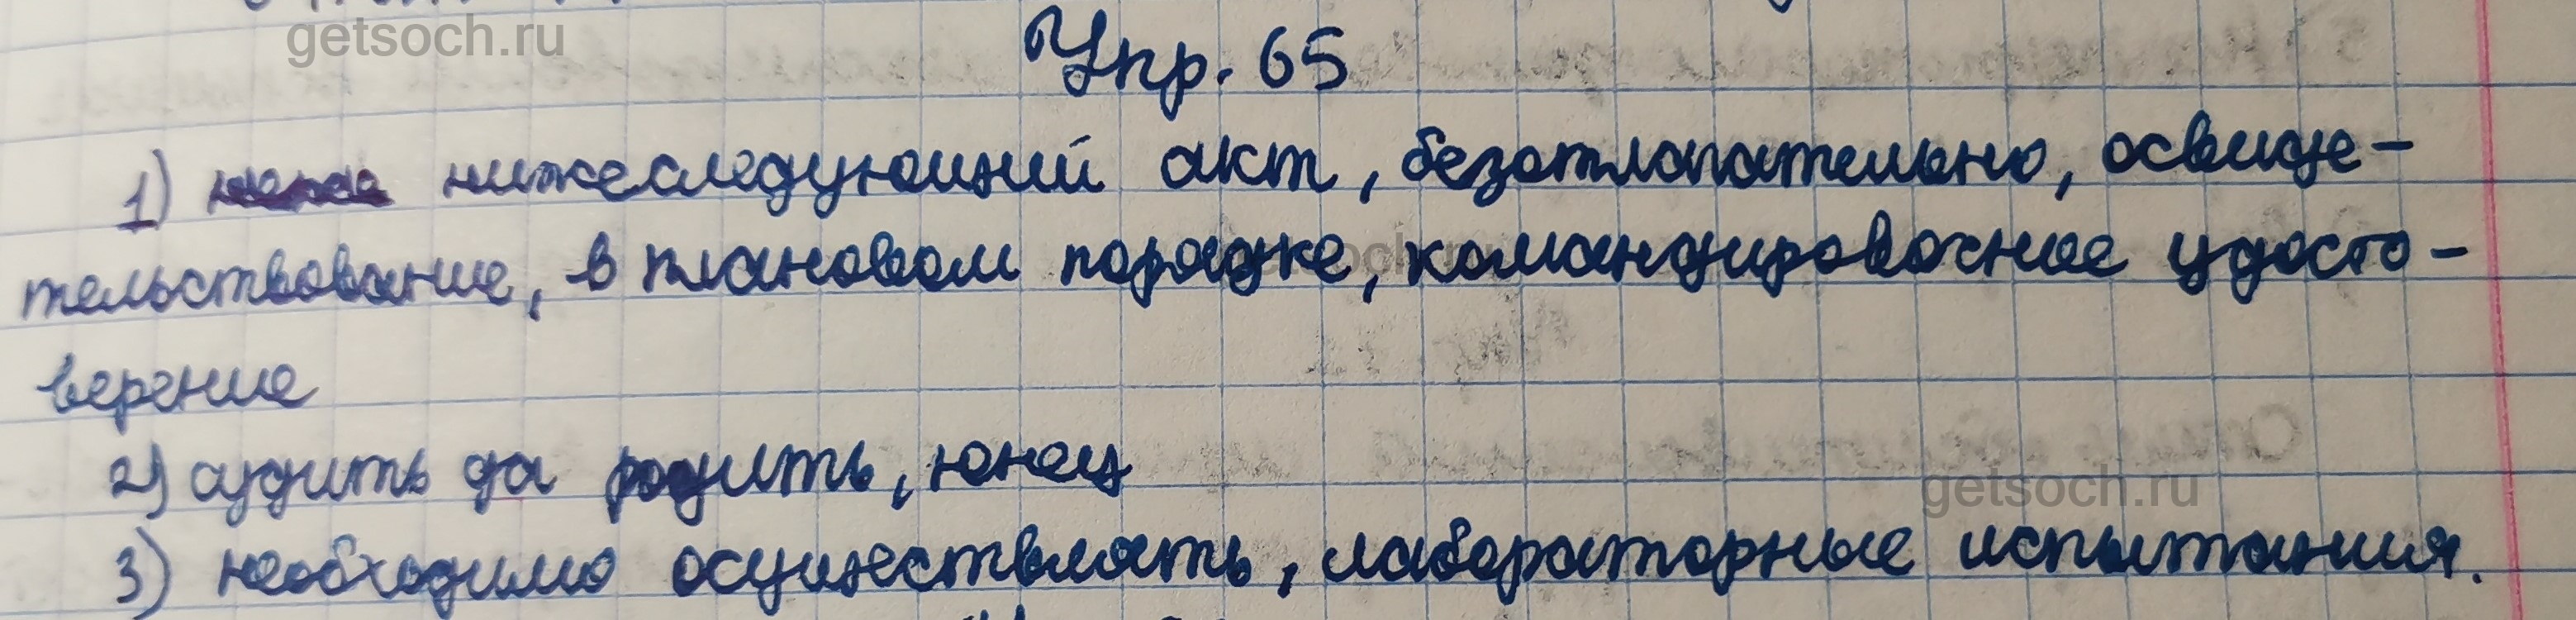 getsoch.ru
Упр. 65
1) нижеследующий акт, безотлагательно, освиде-
тельствование, в плановом порядке, командировочное удосто-
верение
2) судить да рядить, юнец
getsoch.ru
3) необходимо осуществлять, лабораторные испытания.